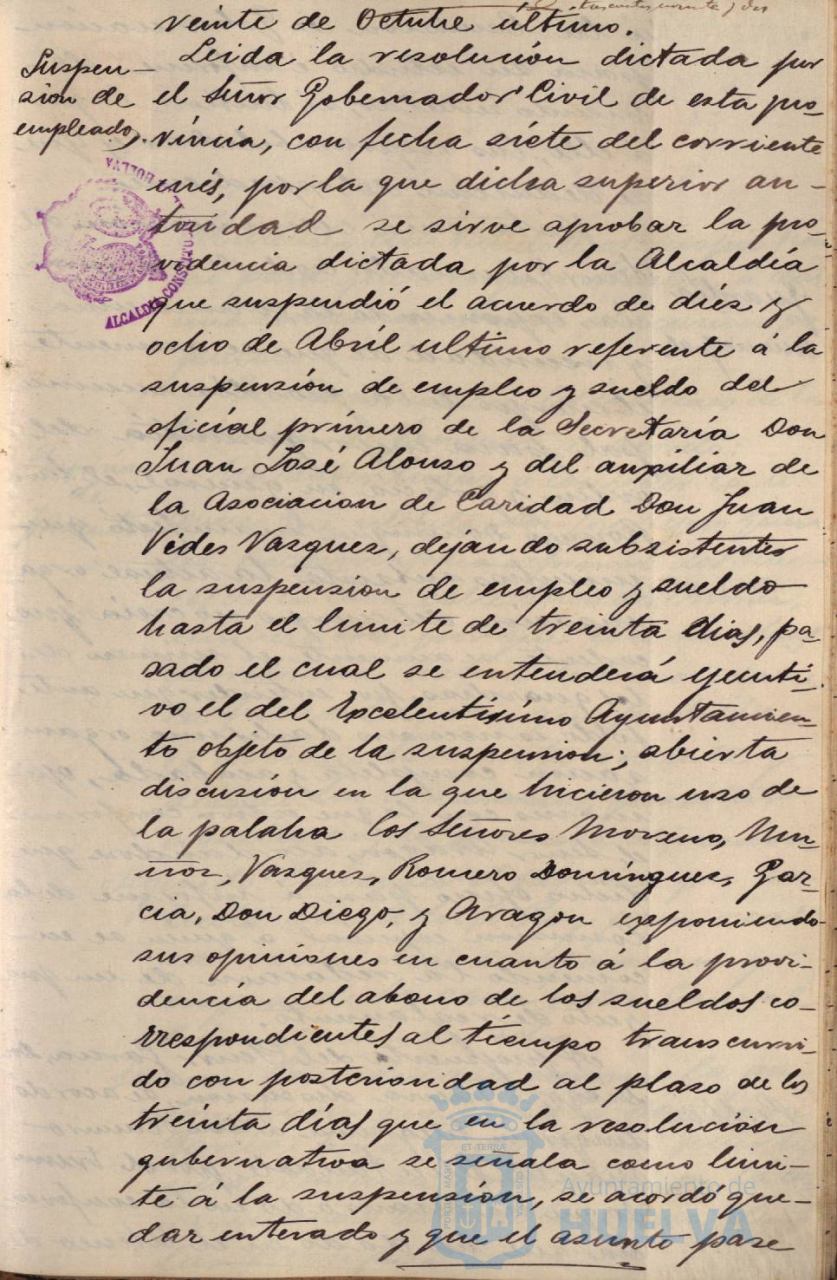 veinte de Octubre ultimo.
Suspen-
sion de
empleados.
Leida la resolución dictada por
el Señor Gobernador Civil de esta pro-
vincia, con fecha siete del corriente
mes, por la que dicha superior au-
toridad se sirve aprobar la pro-
videncia dictada por la Alcaldía
que suspendió el acuerdo de diez y
ocho de Abril ultimo referente á la
suspensión de empleo y sueldo del
oficial primero de la Secretaría Don
Juan José Alonso y del auxiliar de
la Asociacion de Caridad Don Juan
Vides Vazquez, dejando subsistentes
la suspension de empleo y sueldo
hasta el limite de treinta dias, pa-
sado el cual se entenderá ejecuti-
vo el del Excelentisimo Ayuntamien-
to objeto de la suspension; abierta
discusión en la que hicieron uso de
la palabra los Señores Moreno, Mu-
ñoz, Vazquez, Romero Dominguez, Gar-
cia, Don Diego, y Aragon exponiendo
sus opiniones en cuanto á la provi-
dencia del abono de los sueldos co-
rrespondientes al tiempo transcurri-
do con posterioridad al plazo de los
treinta días que en la resolución
gubernativa se señala como limi-
te á la suspensión, se acordó que-
dar enterado y que el asunto pase
ALCALDIA CONSTITU
HUELVA
Ayuntamiento de
HUELVA